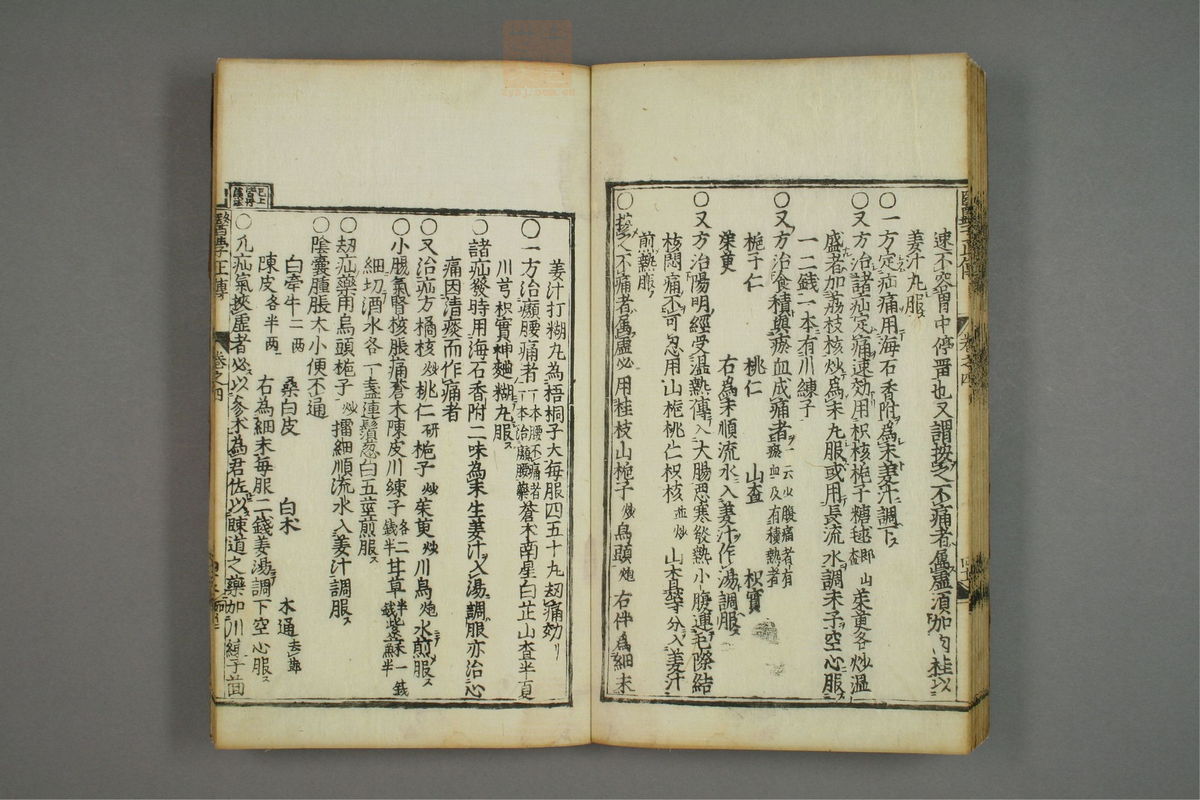 速不容胃中停畱也又謂按之不痛者屬虛須加肉桂以
姜汁丸服
〇一方定疝痛用海石香附爲末姜汁調下
〇又方治諸疝定痛速効用枳核梔子糖毬即山查茱萸各炒溫
盛者加荔枝核炒爲末丸服或用長流水調末子空心服
一二錢一本有川練子
〇又方治食積與瘀血成痛者一云小腹痛者有瘀血及有積熱者
梔子仁 桃仁 山查 枳實
茱萸 右爲末順流水入姜汁作湯調服
〇又方治陽明經受溫熱傳入大腸惡寒發熱小腹連毛際結
核悶痛不可忍用山梔桃仁枳核並炒山查等分入姜汁
煎熱服
〇按之不痛者屬虛必用桂枝山梔子炒烏頭炮右件爲細末
姜汁打糊丸為梧桐子大每服四五十九刼痛効
〇一方治㿗腰痛者一本腰不痛者一本治㿗腰藥蒼朮南星白芷山查半夏
川芎枳實神麯糊丸服
〇諸疝發時用海石香附二味為末生姜汁入湯調服亦治心
痛因清痰而作痛者
〇又治疝方橘核炒桃仁研梔子炒茱萸炒川烏炮水煎服
〇小腸氣腎核脹痛蒼朮陳皮川練子各二錢半甘草半錢紫蘇一錢半
細切酒水各一盞連鬚葱白五莖煎服
〇刼疝藥用烏頭梔子炒擂細順流水入姜汁調服
〇陰囊腫脹大小便不通
白牽牛二兩 桑白皮 白朮 木通去節
陳皮各半兩 右為細末每服二錢姜湯調下空心服
〇凡疝氣挾虛者必以參朮為君佐以踈道之藥加川練子茴
醫學正傳 卷之四